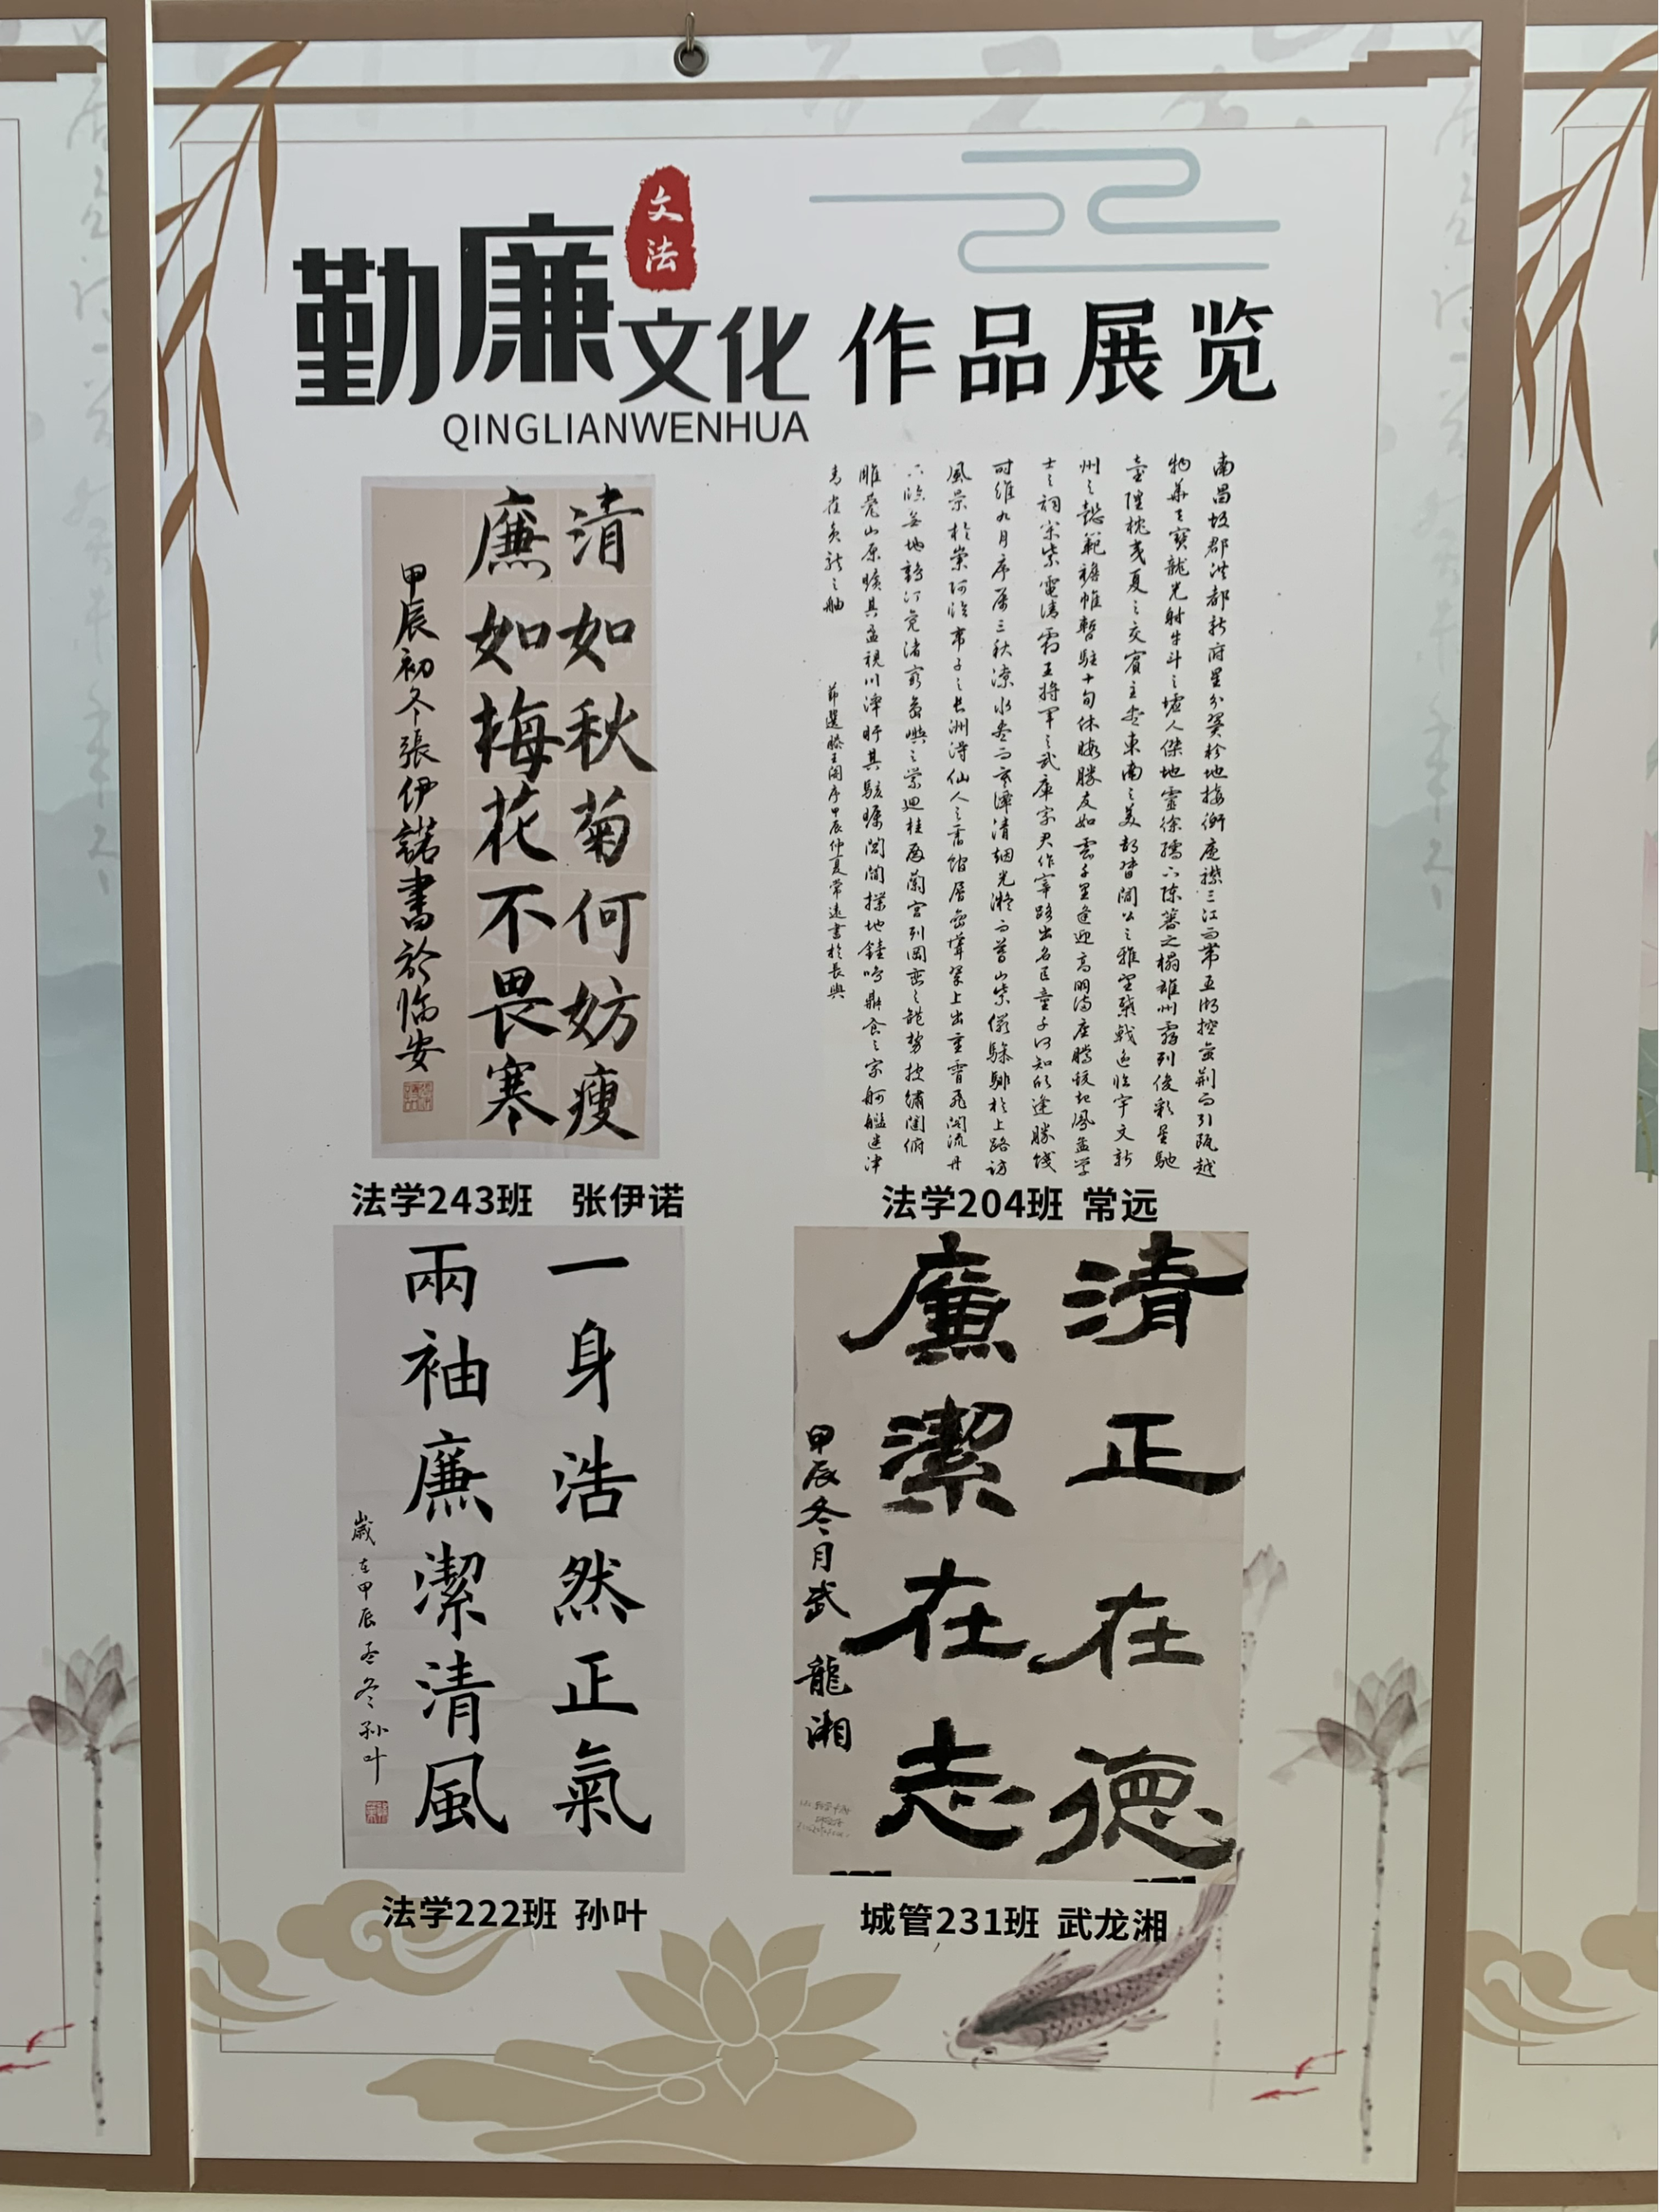 文法
勤廉文化 作品展览
QINGLIANWENHUA
清如秋菊何妨瘦
廉如梅花不畏寒
甲辰初冬張伊諾書於臨安
法学243班 张伊诺
南昌故郡洪都新府星分翼軫地接衡廬襟三江而帶五湖控蠻荊而引甌越
物華天寶龍光射牛斗之墟人傑地靈徐孺下陳蕃之榻雄州霧列俊彩星馳
臺隍枕夷夏之交賓主盡東南之美都督閻公之雅望棨戟遙臨宇文新
州之懿範襜帷暫駐十旬休暇勝友如雲千里逢迎高朋滿座騰蛟起鳳孟學
士之詞宗紫電清霜王將軍之武庫家君作宰路出名區童子何知躬逢勝餞
時維九月序屬三秋潦水盡而寒潭清烟光凝而暮山紫儼驂騑於上路訪
風景於崇阿臨帝子之長洲得仙人之舊館層巒聳翠上出重霄飛閣流丹
下臨無地鶴汀鳧渚窮島嶼之縈迴桂殿蘭宮列岡巒之體勢披繡闥俯
雕甍山原曠其盈視川澤盱其駭矚閭閻撲地鐘鳴鼎食之家舸艦迷津
青雀黃龍之舳
節選滕王閣序甲辰仲夏常遠書於長興
法学204班 常远
一身浩然正氣
兩袖廉潔清風
歲在甲辰孟冬孙叶
法学222班 孙叶
清正在德
廉潔在志
甲辰冬月武龍湘
城管231班 武龙湘